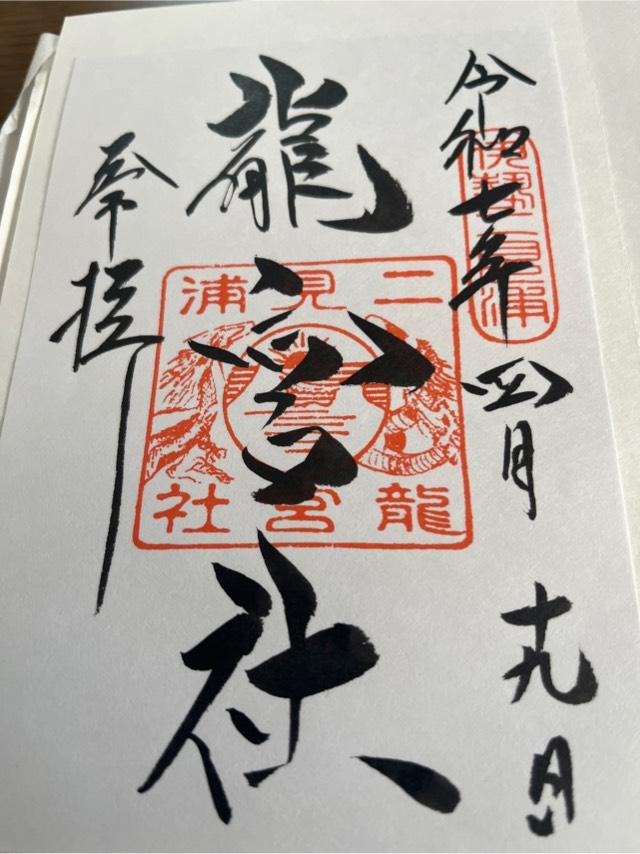 令和七年四月十九日
伊勢二見浦
龍宮社
二見浦
龍宮社
奉拝